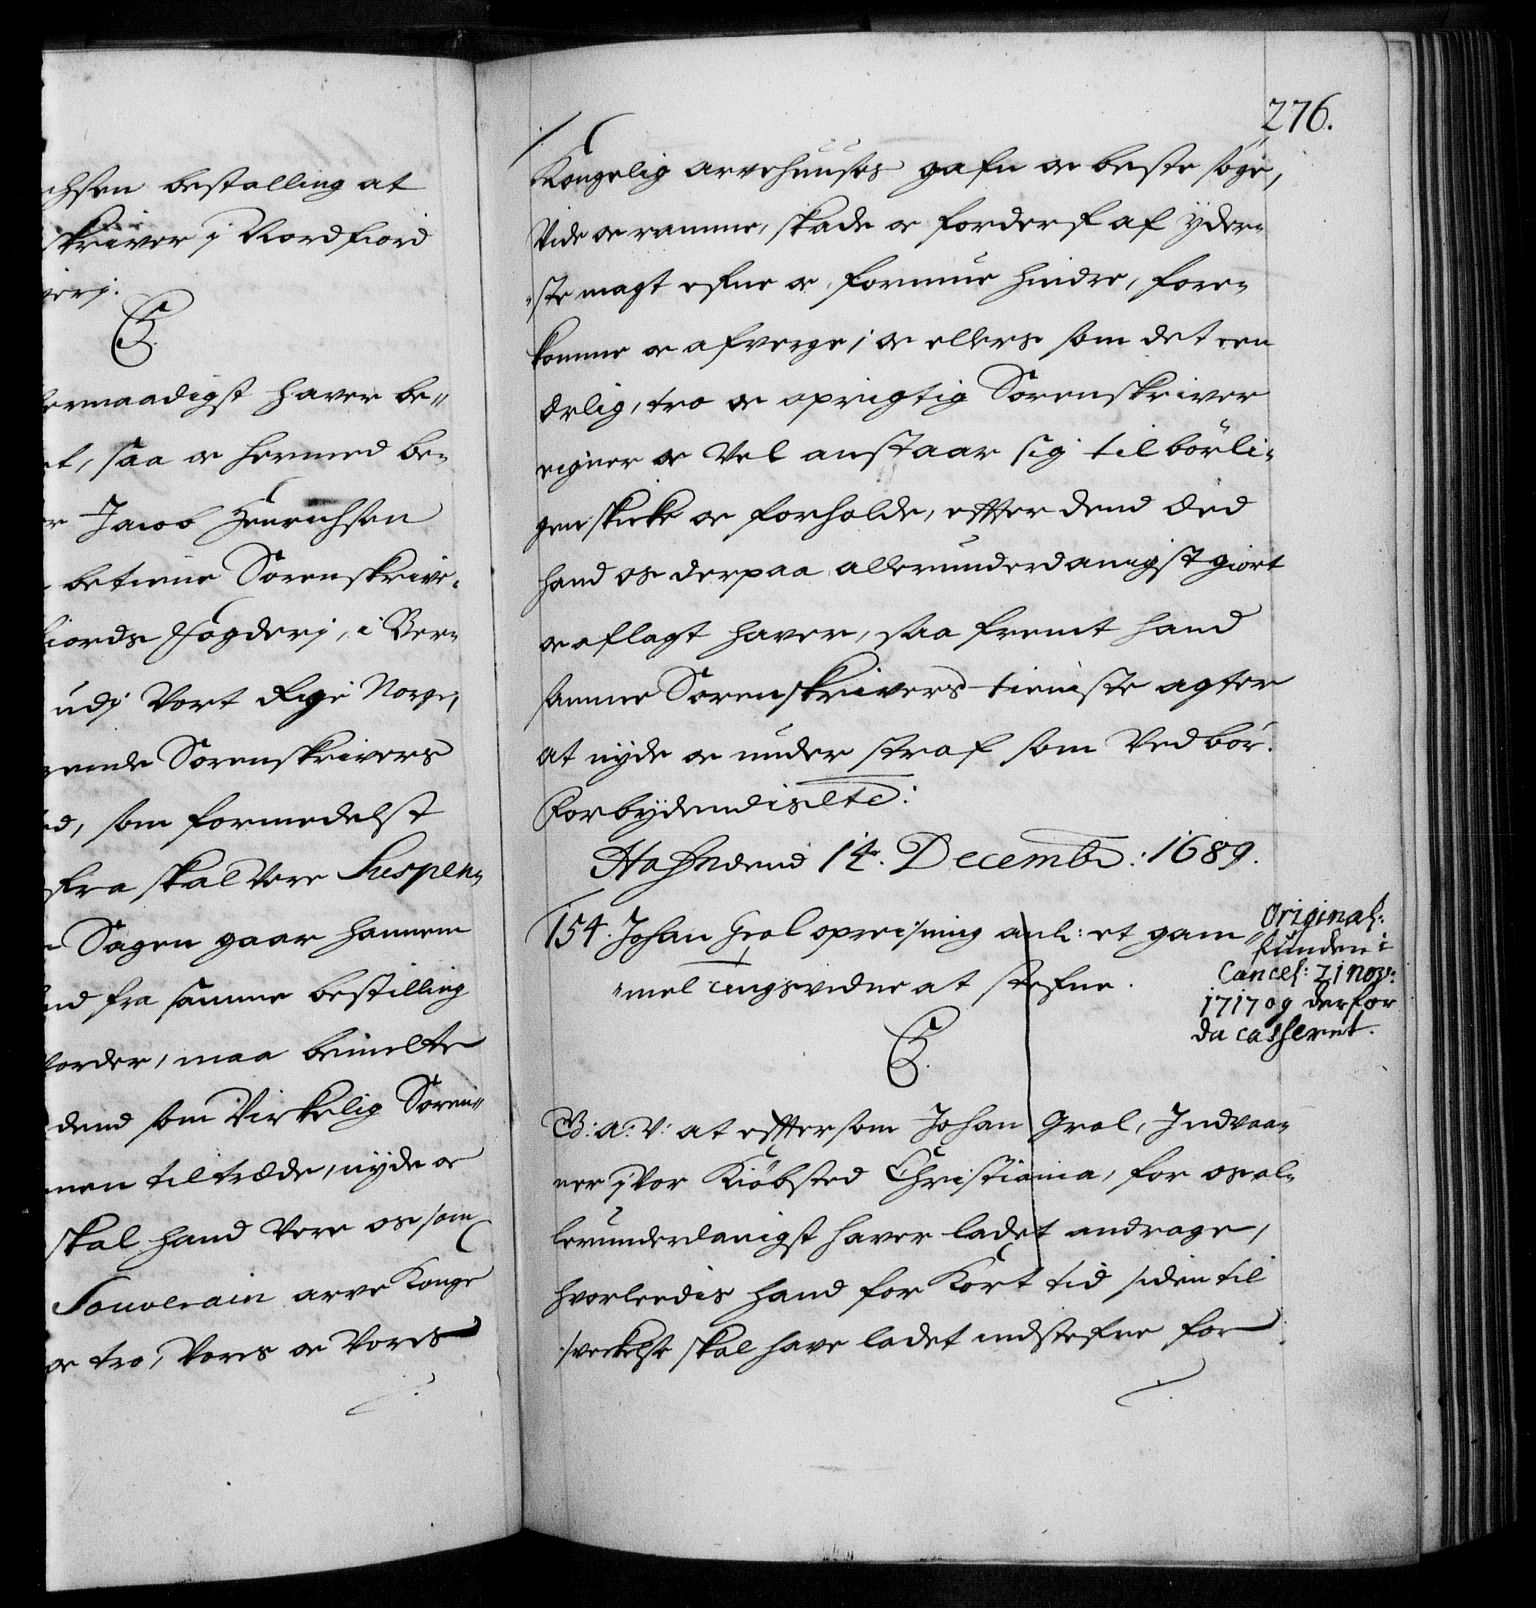 chsen bestalling at
skriver i Nordfiord
derj.
C5.
lernaadigst haver be-
et, saa oc hermed be-
er Jacob Henrichsen
betiene Sorenskrive-
fiords Fogderj, i Ber-
udj Vort Rige Norge,
rende Sorenskrivers
ed, som formedelst
fra skal Vere Suspen-
Sagen gaar hannem
nd fra samme bestilling
vorder, maa bemelte
dend som Virkelig Soren-
nen tiltræde, nyde oc
skal hand Vere os som
Souverain arve Konge
oc tro, Vores oc Vores
276.
Kongelig arvehuuses gafn oc beste søge,
Vide oc ramme, skade oc forderf af yder-
ste magt efne oc formue hindre, fore-
komme oc afverge, oc ellers som det een
ærlig, tro oc oprigtig Sorenskriver
eigner oc Vel anstaar sig tilbörli-
gen skicke oc forholde, effter dend Æed
hand os derpaa allerunderdanigst giort
oc aflagt haver, saa fremt hand
samme Sorenskrivers tieniste agter
at nyde oc under straf som Vedbör.
Forbydendis etc:
Hafn dend 14. Decembr: 1689.
154. Johan Grol opreisning anl: et gam-
mel tingsvidne at stefne.
Original:
funden i
Cancel: 21 Nov:
1717 og derfor
da casseret.
C5.
G: A: V: at efftersom Johan Grol, Indvaa-
ner i Vor Kiöbsted Christiania, for os al-
lerunderdanigst haver ladet andrage,
hvorledis hand for Kort tid siden til
svekelse skal have ladet indstefne for